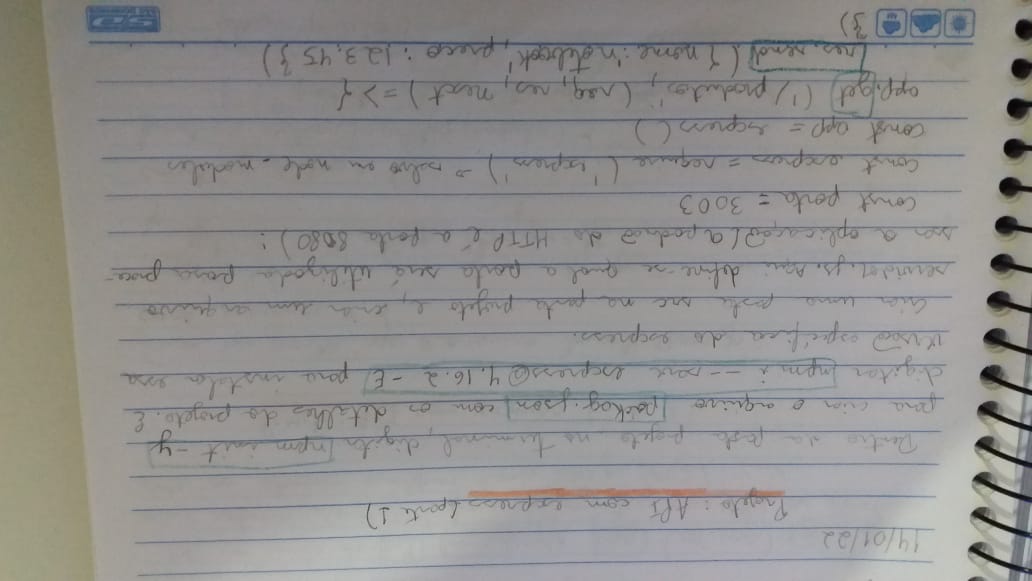 14/01/22
Projeto: API com express (parte 1)
Dentro da pasta projeto, no terminal, digitar npm init -y
para criar o arquivo package.json com os detalhes do projeto. E
digitar npm i --save express@4.16.2 -E para instalar essa
versão específica do express.
Criar uma pasta src na pasta projeto e, criar um arquivo
servidor.js. Aqui define-se qual a porta será utilizada para
ser a aplicação (a padrão do HTTP é a porta 8080):
const porta = 3003
const express = require ('express') => salvo em node-modules
const app = express ()
app.get ('/produtos', (req, res, next) => {
res.send ({ nome: 'notebook', preco: 123.45 })
})